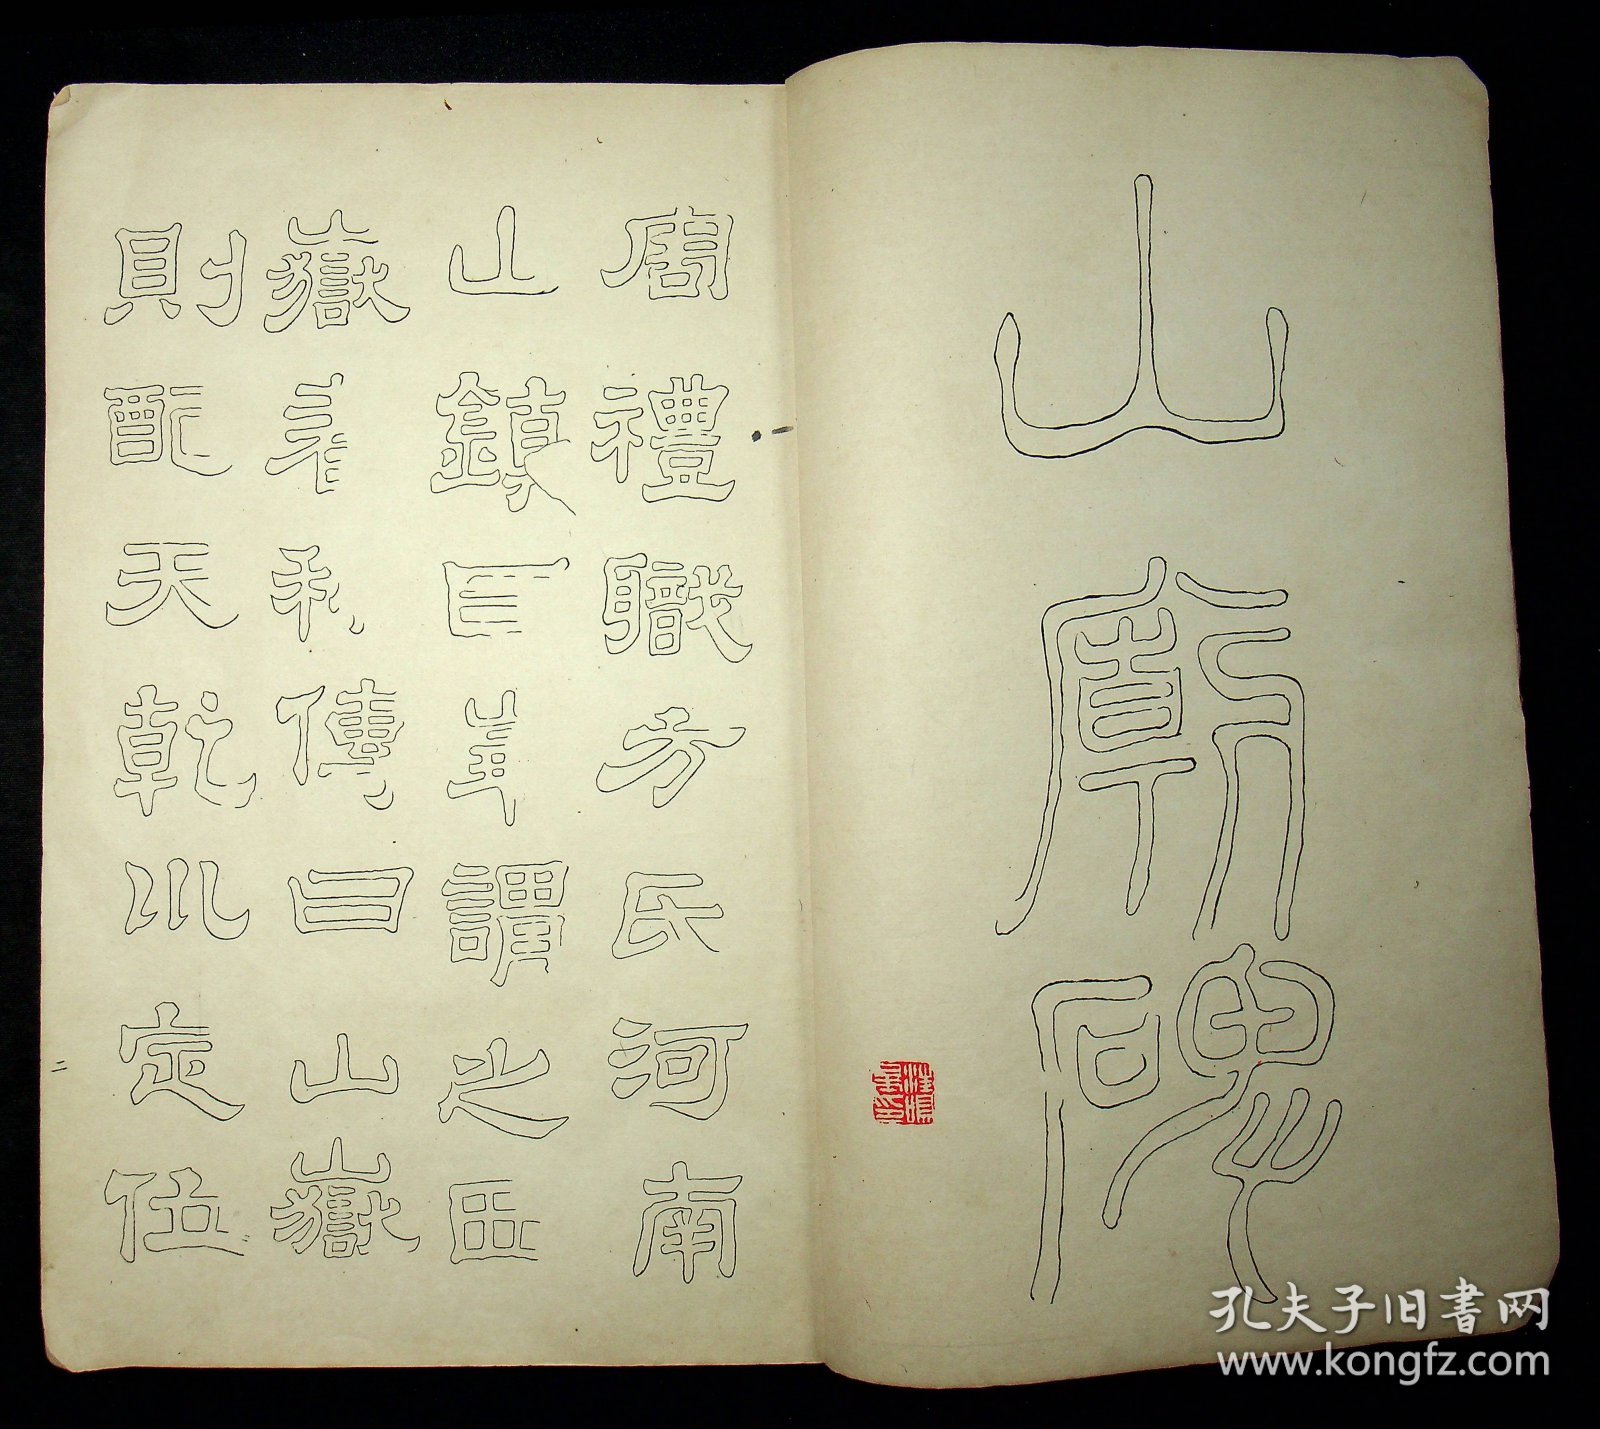 山廟碑
周禮職方氏河南
山鎮曰華謂之西
嶽春秋傳曰山嶽
則配天乾川定位
二
孔夫子旧书网
www.kongfz.com